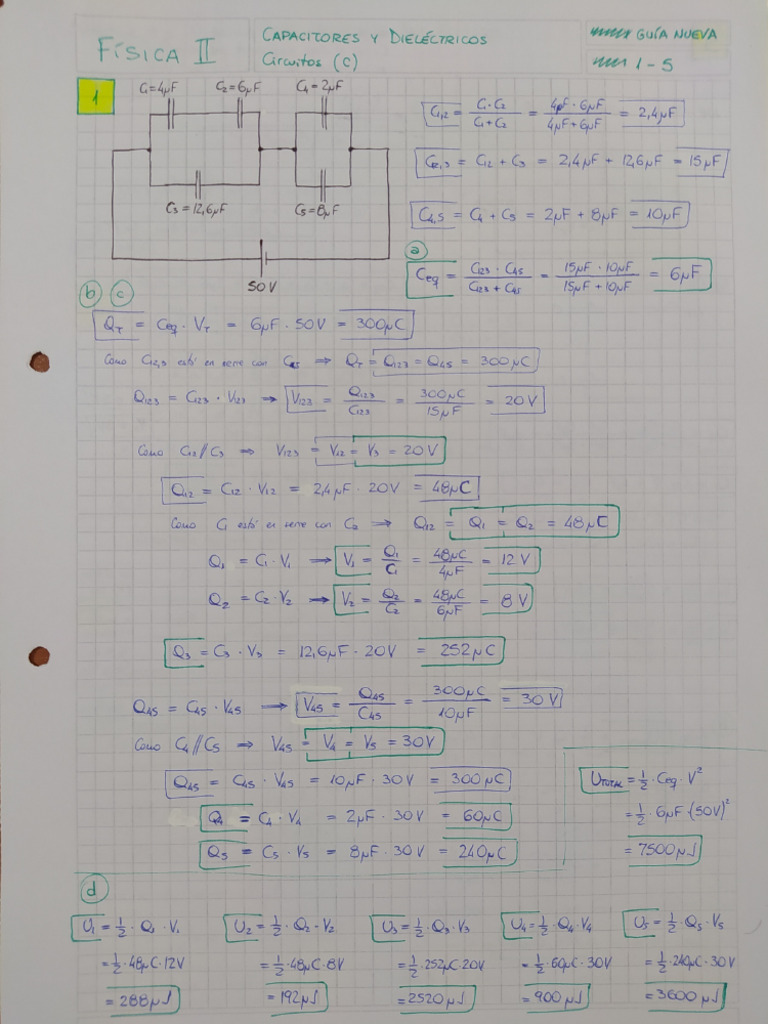 FÍSICA II
CAPACITORES Y DIELÉCTRICOS
Circuitos (C)
GUÍA NUEVA
1-5
1
C₁=4μF C₂=6μF C₄=2μF
C₃=12,6μF C₅=8μF
50V
C₁,₂ = C₁·C₂ / C₁+C₂ = 4μF·6μF / 4μF+6μF = 2,4μF
C₁₂,₃ = C₁₂ + C₃ = 2,4μF + 12,6μF = 15μF
C₄,₅ = C₄ + C₅ = 2μF + 8μF = 10μF
a
Ceq = C₁₂₃·C₄₅ / C₁₂₃+C₄₅ = 15μF·10μF / 15μF+10μF = 6μF
b c
Q_T = Ceq·V_T = 6μF·50V = 300μC
Como C₁₂,₃ está en serie con C₄₅ ⇒ Q_T = Q₁₂₃ = Q₄₅ = 300μC
Q₁₂₃ = C₁₂₃·V₁₂₃ → V₁₂₃ = Q₁₂₃ / C₁₂₃ = 300μC / 15μF = 20V
Como C₁₂//C₃ ⇒ V₁₂₃ = V₁₂ = V₃ = 20V
Q₁₂ = C₁₂·V₁₂ = 2,4μF·20V = 48μC
Como C₁ está en serie con C₂ → Q₁₂ = Q₁ = Q₂ = 48μC
Q₁ = C₁·V₁ → V₁ = Q₁ / C₁ = 48μC / 4μF = 12V
Q₂ = C₂·V₂ → V₂ = Q₂ / C₂ = 48μC / 6μF = 8V
Q₃ = C₃·V₃ = 12,6μF·20V = 252μC
Q₄₅ = C₄₅·V₄₅ → V₄₅ = Q₄₅ / C₄₅ = 300μC / 10μF = 30V
Como C₄//C₅ ⇒ V₄₅ = V₄ = V₅ = 30V
Q₄₅ = C₄₅·V₄₅ = 10μF·30V = 300μC
Q₄ = C₄·V₄ = 2μF·30V = 60μC
Q₅ = C₅·V₅ = 8μF·30V = 240μC
U_TOTAL = ½·Ceq·V²
= ½·6μF·(50V)²
= 7500μJ
d
U₁ = ½·Q₁·V₁ U₂ = ½·Q₂·V₂ U₃ = ½·Q₃·V₃ U₄ = ½·Q₄·V₄ U₅ = ½·Q₅·V₅
= ½·48μC·12V = ½·48μC·8V = ½·252μC·20V = ½·60μC·30V = ½·240μC·30V
= 288μJ = 192μJ = 2520μJ = 900μJ = 3600μJ